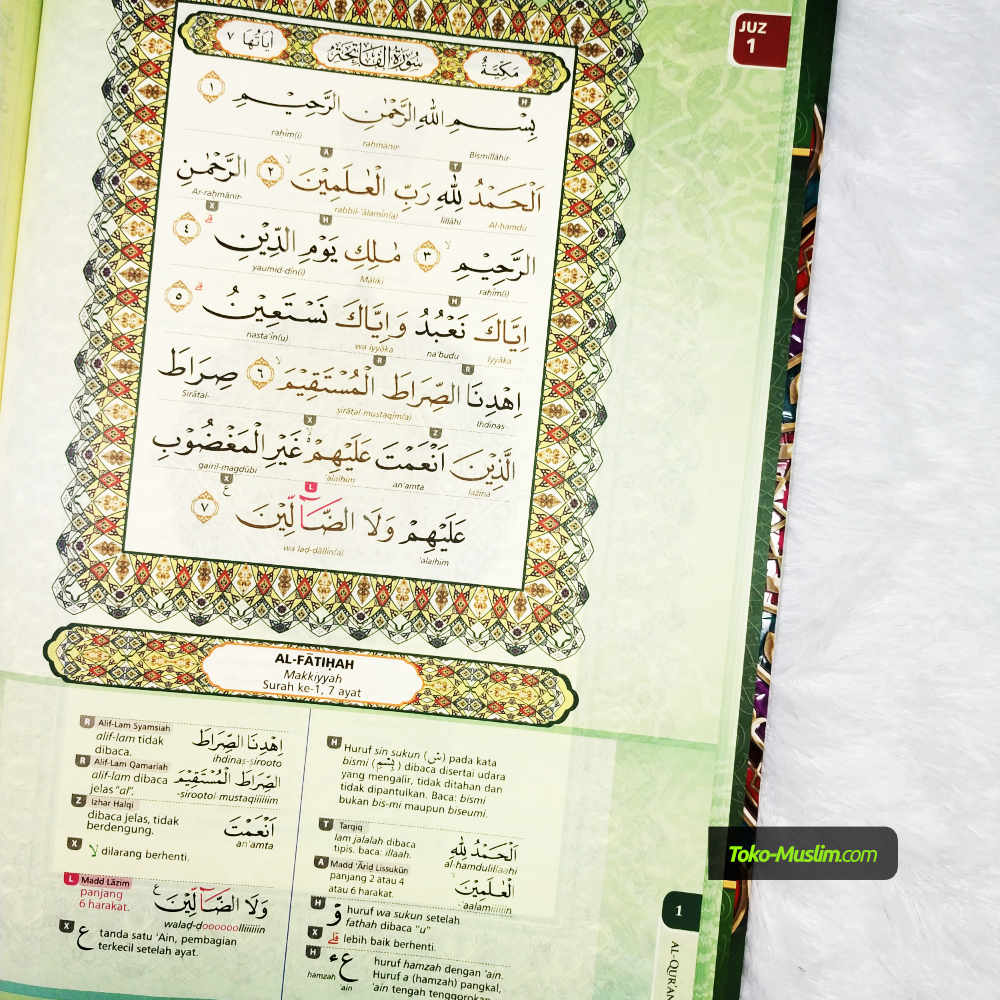 JUZ
1
مَكِّيَّةٌ سُورَةُ الْفَاتِحَةِ اٰيَاتُهَا ٧
بِسْمِ اللهِ الرَّحْمٰنِ الرَّحِيْمِ ١
Bismillāhir- raḥmānir- raḥīm(i)
اَلْحَمْدُ لِلّٰهِ رَبِّ الْعٰلَمِيْنَ ۙ ٢ الرَّحْمٰنِ
Al-ḥamdu lillāhi rabbil-‘ālamīn(a) Ar-raḥmānir-
الرَّحِيْمِ ۙ ٣ مٰلِكِ يَوْمِ الدِّيْنِ ۗ ٤
raḥīm(i) Māliki yaumid-dīn(i)
اِيَّاكَ نَعْبُدُ وَاِيَّاكَ نَسْتَعِيْنُ ۗ ٥
Iyyāka na‘budu wa iyyāka nasta‘īn(u)
اِهْدِنَا الصِّرَاطَ الْمُسْتَقِيْمَ ۙ ٦ صِرَاطَ
Ihdinaṣ- ṣirāṭal-mustaqīm(a) Ṣirāṭal-
الَّذِيْنَ اَنْعَمْتَ عَلَيْهِمْ ۙ غَيْرِ الْمَغْضُوْبِ
lażīna an‘amta ‘alaihim gairil-magḍūbi
عَلَيْهِمْ وَلَا الضَّاۤلِّيْنَ ࣖ ٧
‘alaihim wa laḍ-ḍāllīn(a)
AL-FĀTIḤAH
Makkiyyah
Surah ke-1, 7 ayat
R Alif-Lam Syamsiah
alif-lam tidak اِهْدِنَا الصِّرَاطَ
dibaca. ihdinas-sirooto
R Alif-Lam Qamariah
alif-lam dibaca الصِّرَاطَ الْمُسْتَقِيْمَ
jelas "al". -sirootol mustaqiiiiiim
Z Izhar Halqi
dibaca jelas, tidak اَنْعَمْتَ
berdengung. an'amta
X لا dilarang berhenti.
L Madd Lāzim
panjang وَلَا الضَّاۤلِّيْنَ ࣖ
6 harakat. walad-doooooolliiiiiin
X ع tanda satu ‘Ain, pembagian
terkecil setelah ayat.
H Huruf sin sukun (سْ) pada kata
bismi (بِسْمِ) dibaca disertai udara
yang mengalir, tidak ditahan dan
tidak dipantulkan. Baca: bismi
bukan bis-mi maupun biseumi.
T Tarqiq
lam jalalah dibaca اَلْحَمْدُ لِلّٰهِ
tipis. baca: illaah. al-hamdulillaahi
A Madd ‘Āriḍ Lissukūn
panjang 2 atau 4 الْعٰلَمِيْنَ
atau 6 harakat. -'aalamiiiiiin
H وْ huruf wa sukun setelah
fathah dibaca "u"
X قلے lebih baik berhenti.
H ء ع huruf hamzah dengan 'ain.
hamzah 'ain Huruf a (hamzah) pangkal,
'ain tengah tenggorokan
1
AL-QUR'AN
Toko-Muslim.com